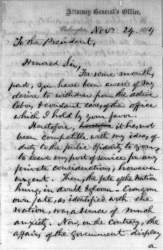 Attorney General's Office,
Nov. 24. 1864
To the President,
Honored Sir,
For some months
past, you have been aware of my
desire to withdraw from the active
labors & constant care of the office
which I hold by your favor.
Heretofore, it has not
been compatible with my ideas of
duty to the public & fidelity to you,
to leave my post of service for any
private considerations, however
urgent. Then, the fate of the nation
hung in doubt & gloom. Even your
own fate, as identified with the
nation, was a source of much
anxiety. Now, on the contrary, the
affairs of the Government display